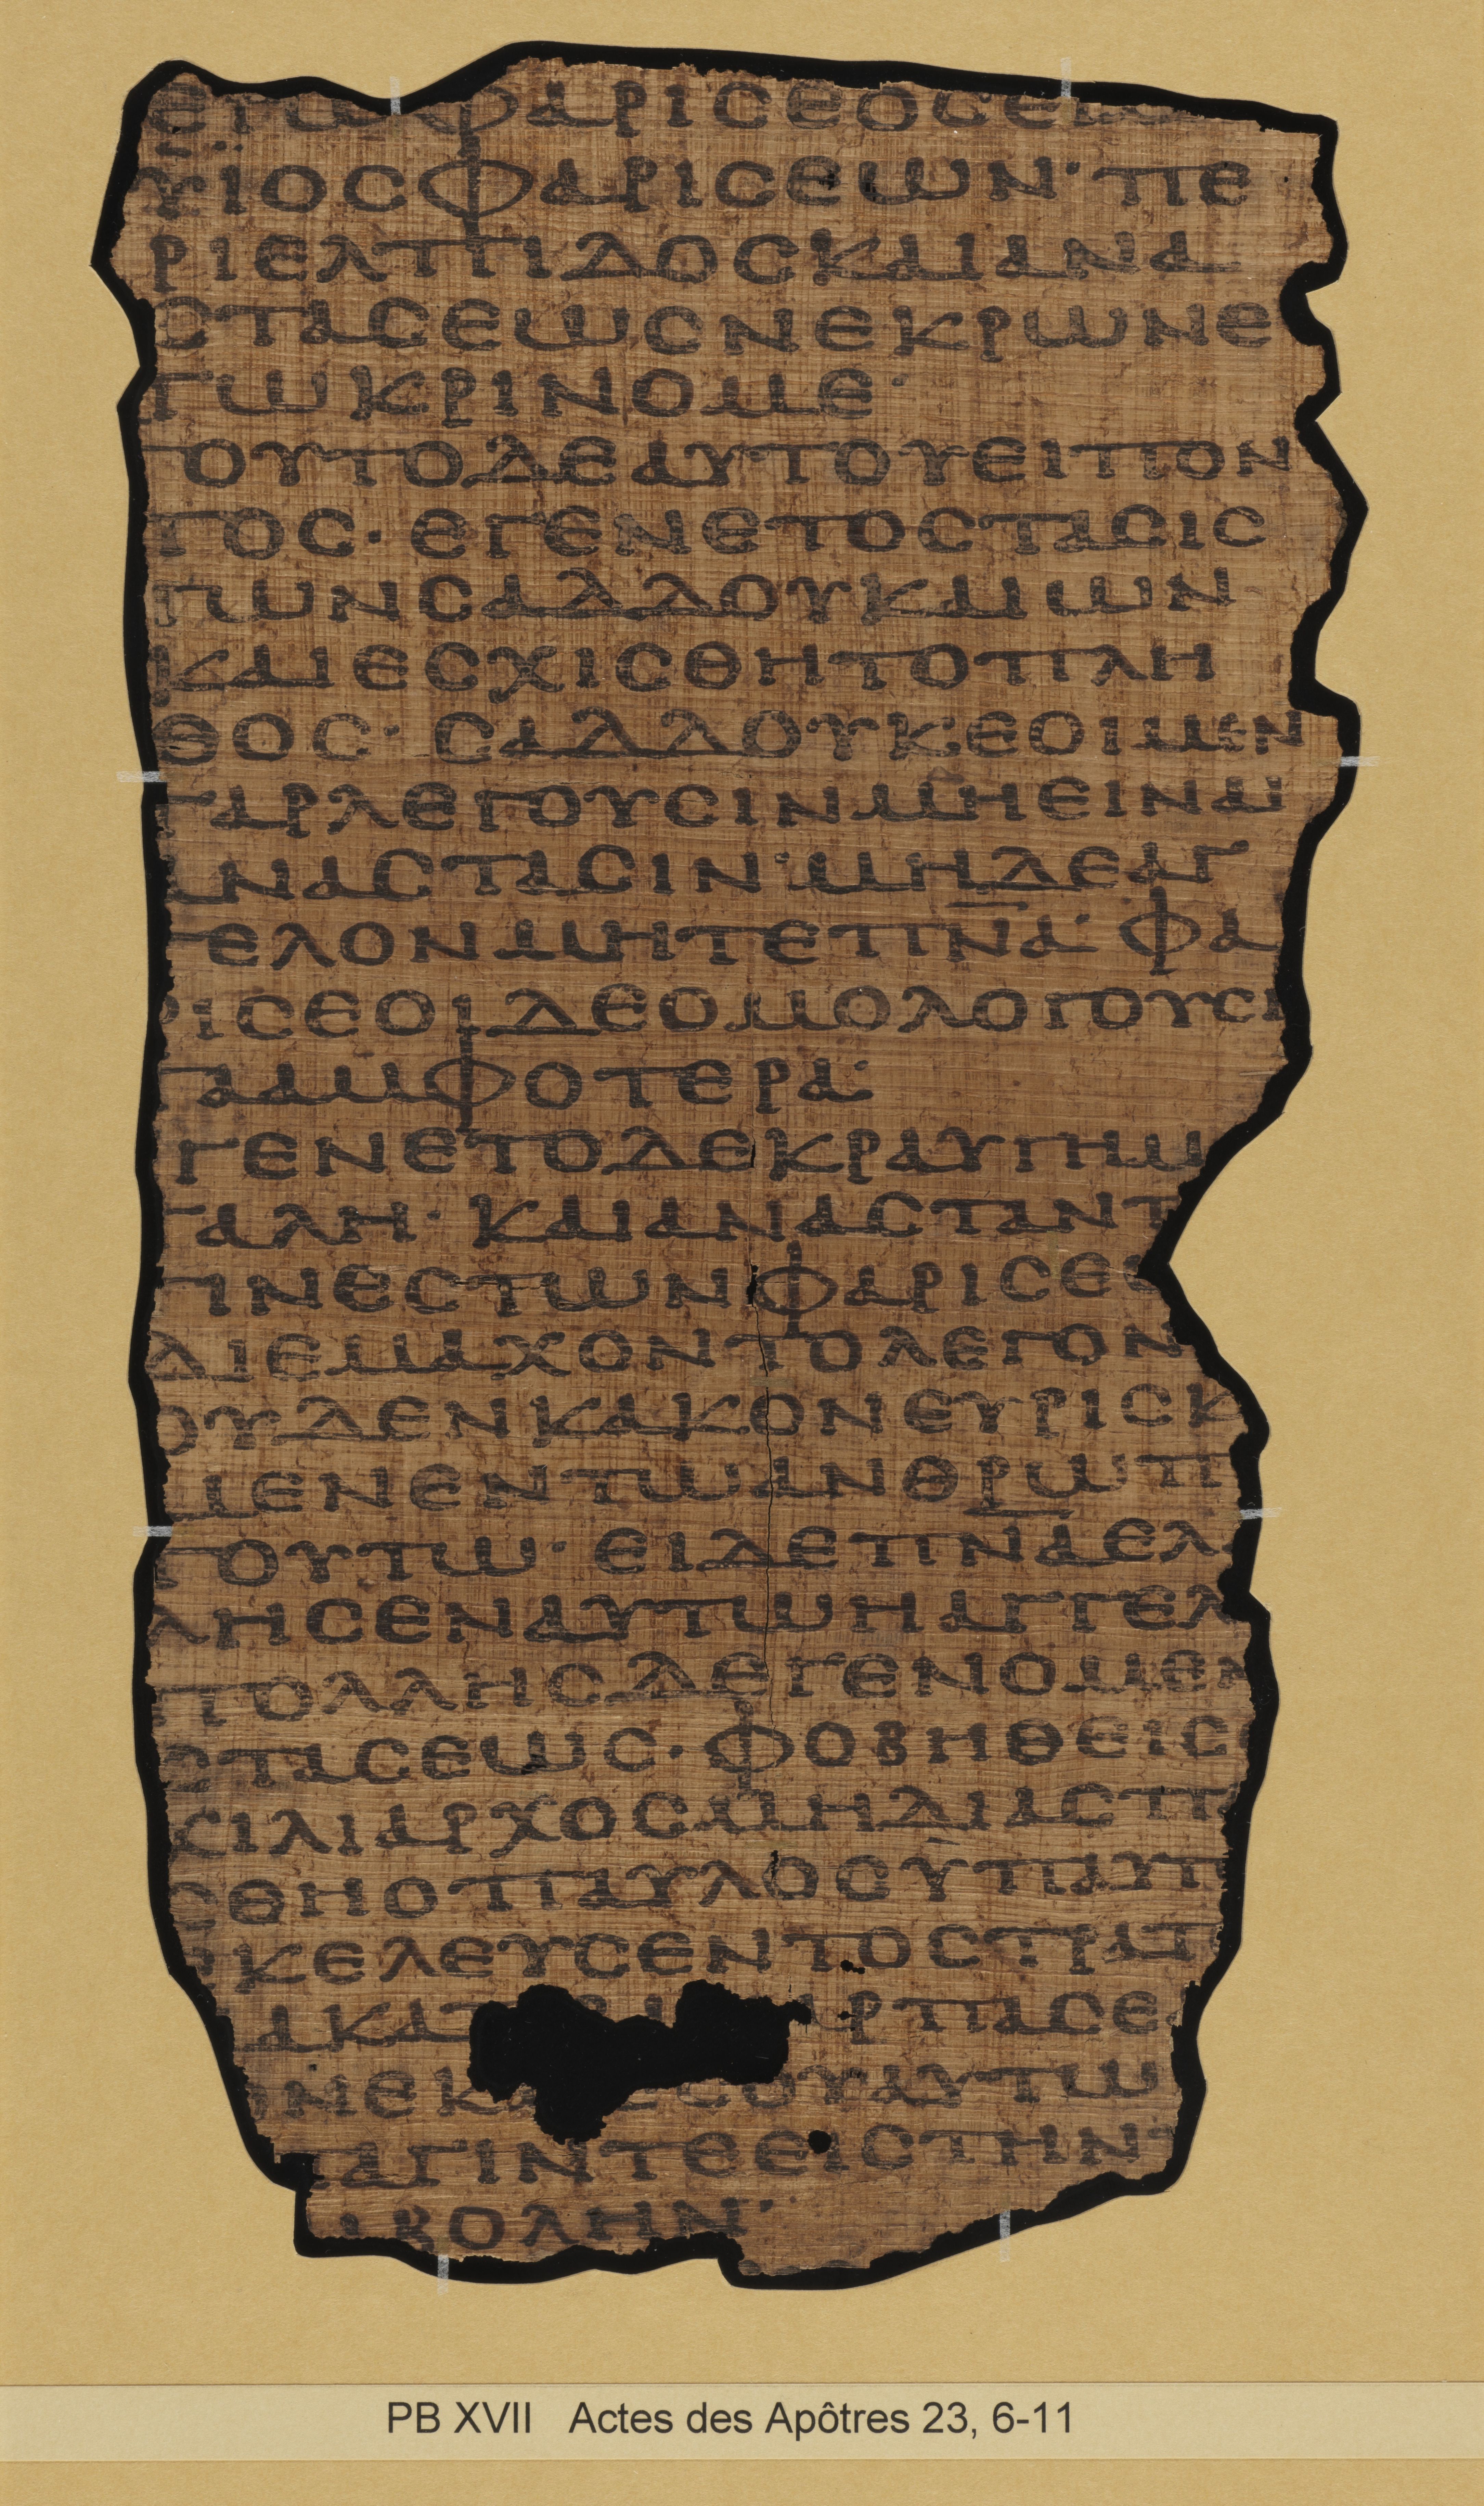 ΕΓΩΦΑΡΙCΕΟCΕΙ
ΥΪΟCΦΑΡΙCΕΩΝ· ΠΕ
ΡΙΕΛΠΙΔΟCΚΑΙΑΝΑ
CΤΑCΕΩCΝΕΚΡΩΝΕ
ΓΩΚΡΙΝΟΜΕ·
ΤΟΥΤΟΔΕΑΥΤΟΥΕΙΠΟΝ
ΤΟC· ΕΓΕΝΕΤΟCΤΑCΙC
ΤΩΝCΑΔΔΟΥΚΑΙΩΝ
ΚΑΙΕCΧΙCΘΗΤΟΠΛΗ
ΘΟC· CΑΔΔΟΥΚΕΟΙΜΕΝ
ΓΑΡΛΕΓΟΥCΙΝΜΗΕΙΝΑΙ
ΑΝΑCΤΑCΙΝ· ΜΗΔΕΑΓ
ΓΕΛΟΝΜΗΤΕΠ̅Ν̅Α̅· ΦΑ
ΡΙCΕΟΙΔΕΟΜΟΛΟΓΟΥCΙ
ΤΑΑΜΦΟΤΕΡΑ·
ΓΕΝΕΤΟΔΕΚΡΑΥΓΗΜ
ΓΑΛΗ· ΚΑΙΑΝΑCΤΑΝΤ
ΤΙΝΕCΤΩΝΦΑΡΙCΕΩ
ΔΙΕΜΑΧΟΝΤΟΛΕΓΟΝ
ΟΥΔΕΝΚΑΚΟΝΕΥΡΙCΚ
ΜΕΝΕΝΤΩΑΝΘΡΩΠ
ΤΟΥΤΩ· ΕΙΔΕΠ̅Ν̅Α̅ΕΛΑ
ΛΗCΕΝΑΥΤΩΗΑΓΓΕΛ
ΠΟΛΛΗCΔΕΓΕΝΟΜΕΝ
CΤΑCΕΩC· ΦΟΒΗΘΕΙCΟ
ΧΙΛΙΑΡΧΟCΜΗΔΙΑCΠΑ
CΘΗΟΠΑΥΛΟCΥΠΑΥΤ
ΕΚΕΛΕΥCΕΝΤΟCΤΡΑΤ
ΜΑΚΑΤ ΑΡΠΑCΕ
ΟΝΕΚ ΕCΟΥΑΥΤΩ
ΑΓΙΝΤΕΕΙCΤΗΝ
ΒΟΛΗΝ·
PB XVII Actes des Apôtres 23, 6-11